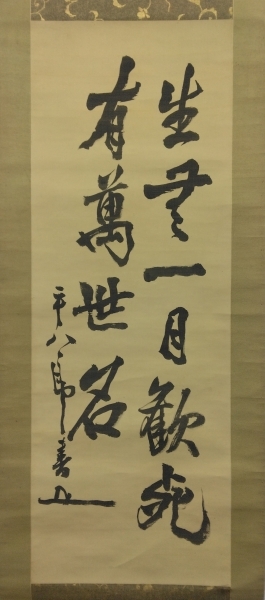 生無一日歓死
有萬世名
平八郎書